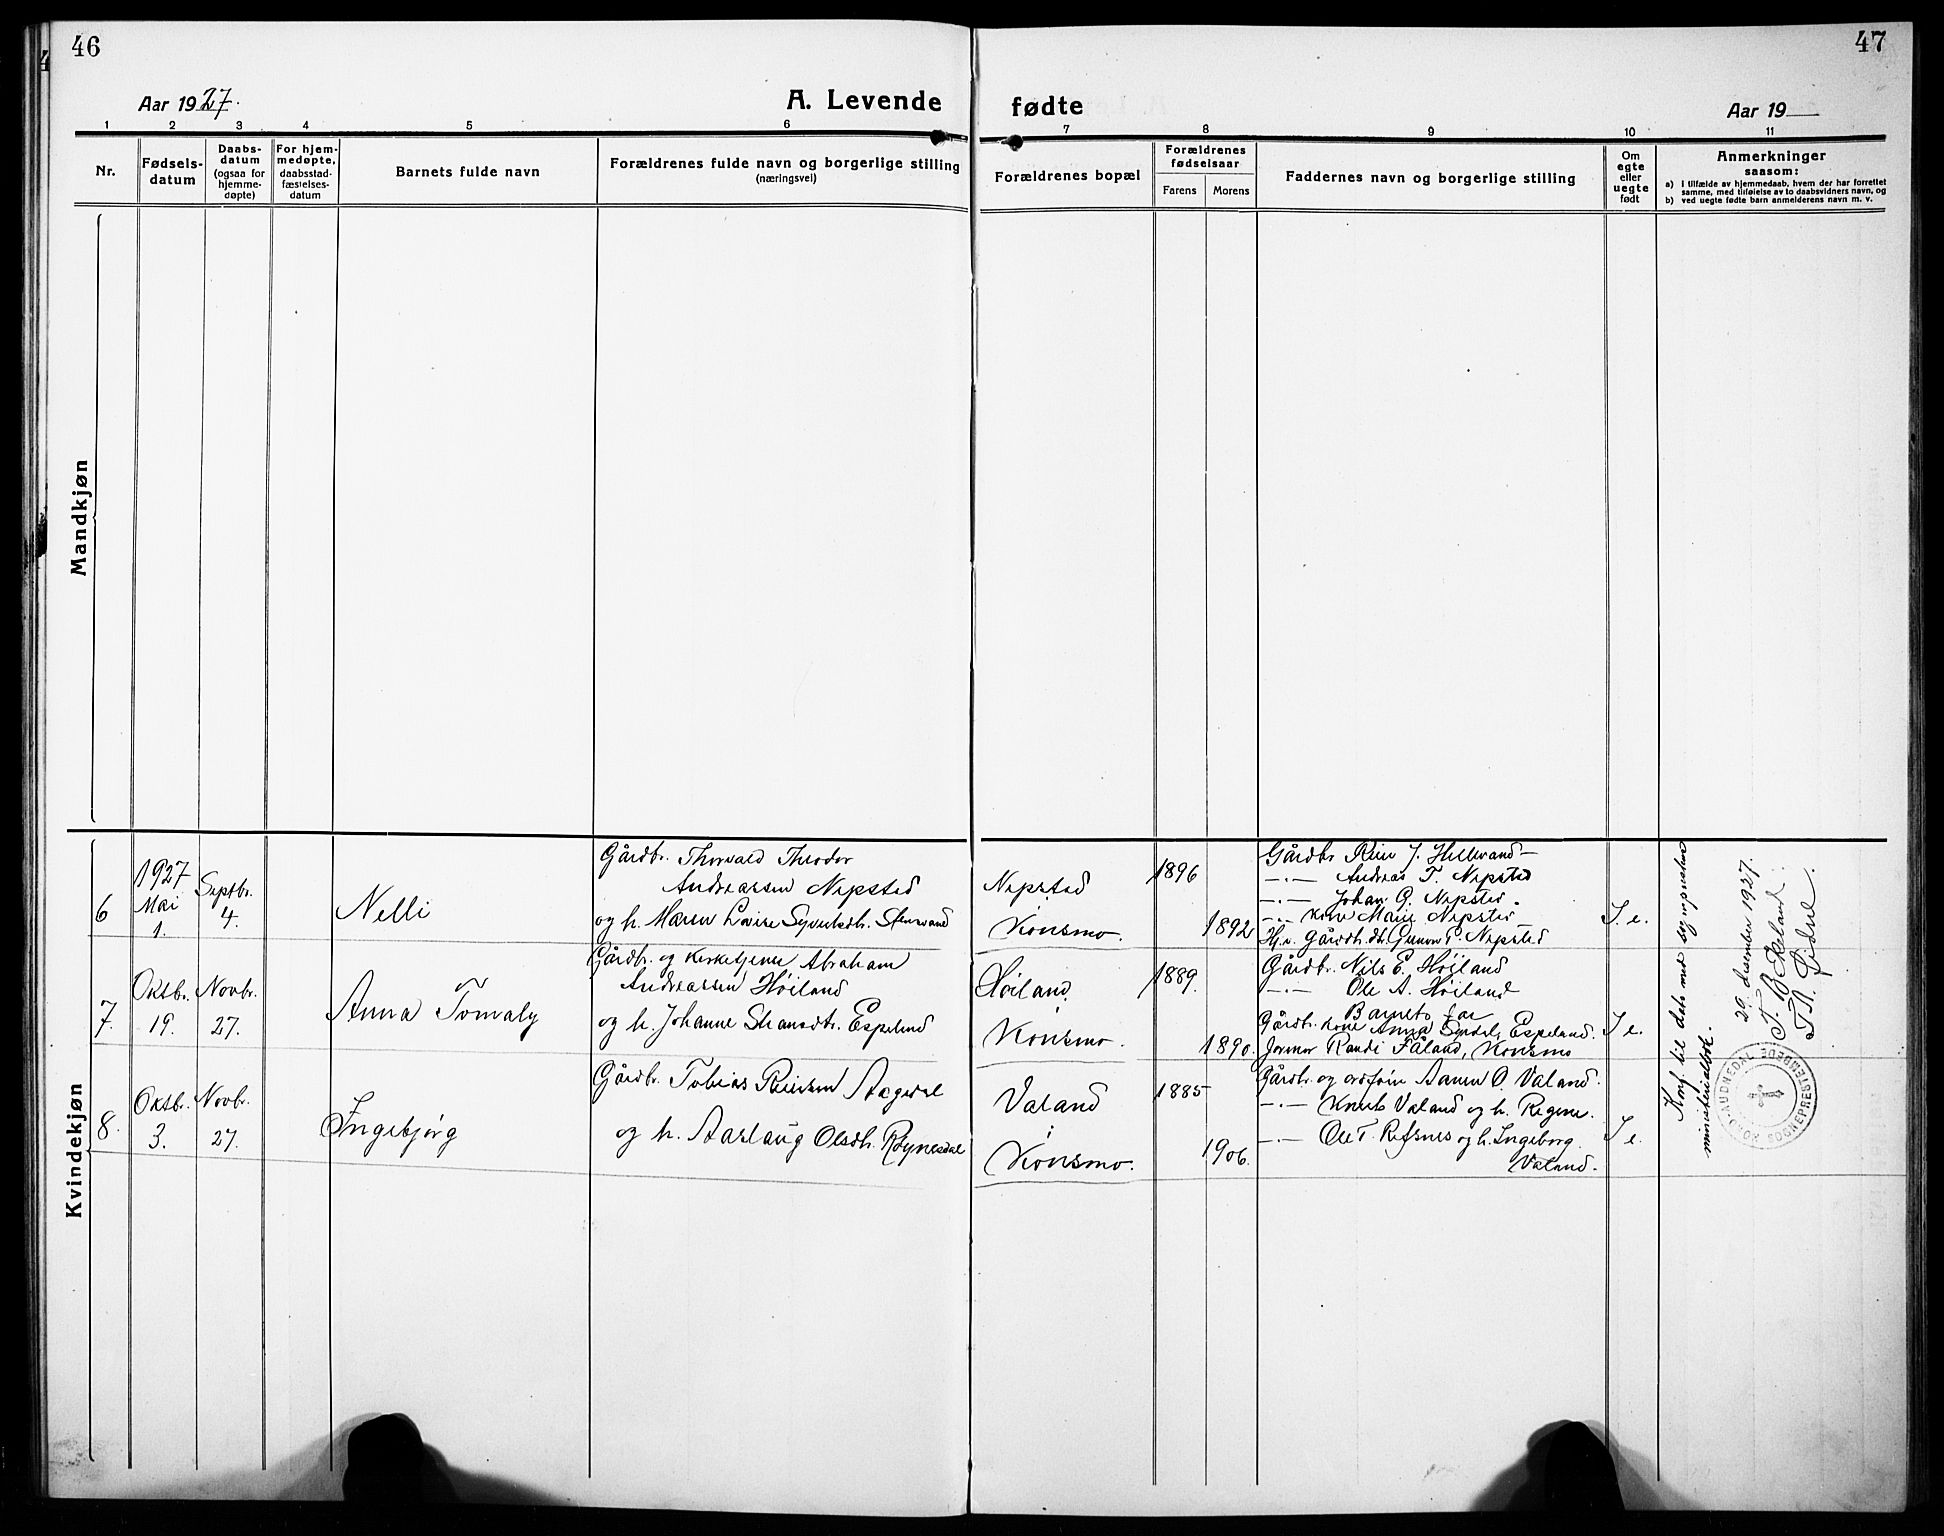 46
47
Aar 1927.
A. Levende fødte
Aar 19
1 2 3 4 5 6 7 8 9 10 11
Nr.
Fødsels-
datum
Daabs-
datum
(ogsaa for
hjemme-
døpte)
For hjem-
medøpte,
daabsstad-
fæstelses-
datum
Barnets fulde navn
Forældrenes fulde navn og borgerlige stilling
(næringsvei)
Forældrenes bopæl
Forældrenes
fødselsaar
Farens
Morens
Faddernes navn og borgerlige stilling
Om
egte
eller
uegte
født
Anmerkninger
saasom:
a) i tilfælde av hjemmedaab, hvem der har forrettet
samme, med tilføielse av to daabsvidners navn, og
b) ved uegte fødte barn anmelderens navn m. v.
Mandkjøn
Kvindekjøn
6
1927
Mai
1.
Septbr.
4.
Nelli
Gårdbr. Thorvald Theodor
Andreassen Nepsted
og h. Maren Lovise
Nepsted
Konsmo.
1896
1892
Gårdbr J.
-"- Andreas T. Nepsted
-"- Johan G. Nepsted.
-"- kone Marie Nepsted
Gårdb. dtr. Gunvor T. Nepsted
I e.
7
Oktbr.
19.
Novbr.
27.
Anna Tomaly
Gårdbr. og kirketjener Abraham
Andreassen Høiland
og h. Johanne Espelund
Høiland,
Konsmo.
1889.
1890.
Gårdbr. Nils E. Høiland
-"- Ole A. Høiland
Barnets far
Gårdbr. kone Anna Espeland.
Jormor Randi Fåland, Konsmo
I e.
8.
Oktbr.
3.
Novbr.
27.
Ingebjørg
Gårdbr. Tobias Reiersen
og h. Aaslaug Olsdtr. Røynesdal
Valand
Konsmo.
1885
1906.
Gårdbr. og ordfører Aanen O. Valand.
-"- Knut Valand og h. Regine.
-"- Ole T. Refsnes og h. Ingeborg.
Valand.
I e.
Konf. til dato med sogneprestens
ministerialbok.
20 desember 1927.
T. B. Ikeland.
T. A.
NORD-AUDNEDAL SOGNEPRESTEMBEDE